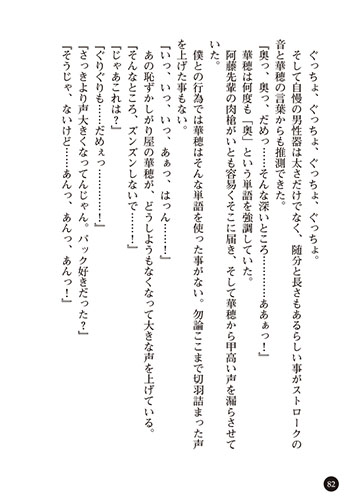 ぐっちょ、ぐっちょ、ぐっちょ、ぐっちょ。
そして自慢の男性器は太さだけでなく、随分と長さもあるらしい事がストロークの
音と華穂の言葉からも推測できた。
『奥っ、奥っ、だめっ……そんな深いところ…………ああぁっ！』
華穂は何度も「奥」という単語を強調していた。
阿藤先輩の肉槍がいとも容易くそこに届き、そして華穂から甲高い声を漏らさせて
いた。
僕との行為では華穂はそんな単語を使った事がない。勿論ここまで切羽詰まった声
を上げた事もない。
『いっ、いっ、いっ、あぁっ、はっん……！』
あの恥ずかしがり屋の華穂が、どうしようもなくなって大きな声を上げている。
『そんなところ、ズンズンしないで……！』
『じゃあこれは？』
『ぐりぐりも……だめぇっ…………！』
『さっきより声大きくなってんじゃん。バック好きだった？』
『そうじゃ、ないけど……あんっ、あんっ、あんっ！』
82